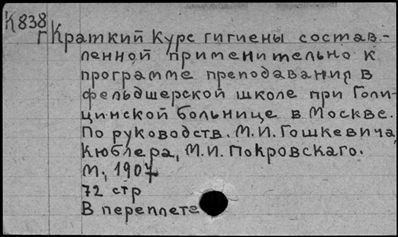 К838
Краткий курс гигиены состав-
ленной применительно к
программе преподавания в
фельдшерской школе при Голи-
цинской больнице в Москве.
По руководств. М.И. Гошкевича,
Кюблера, М.И. Покровскаго.
М, 1907
72 стр
В переплете